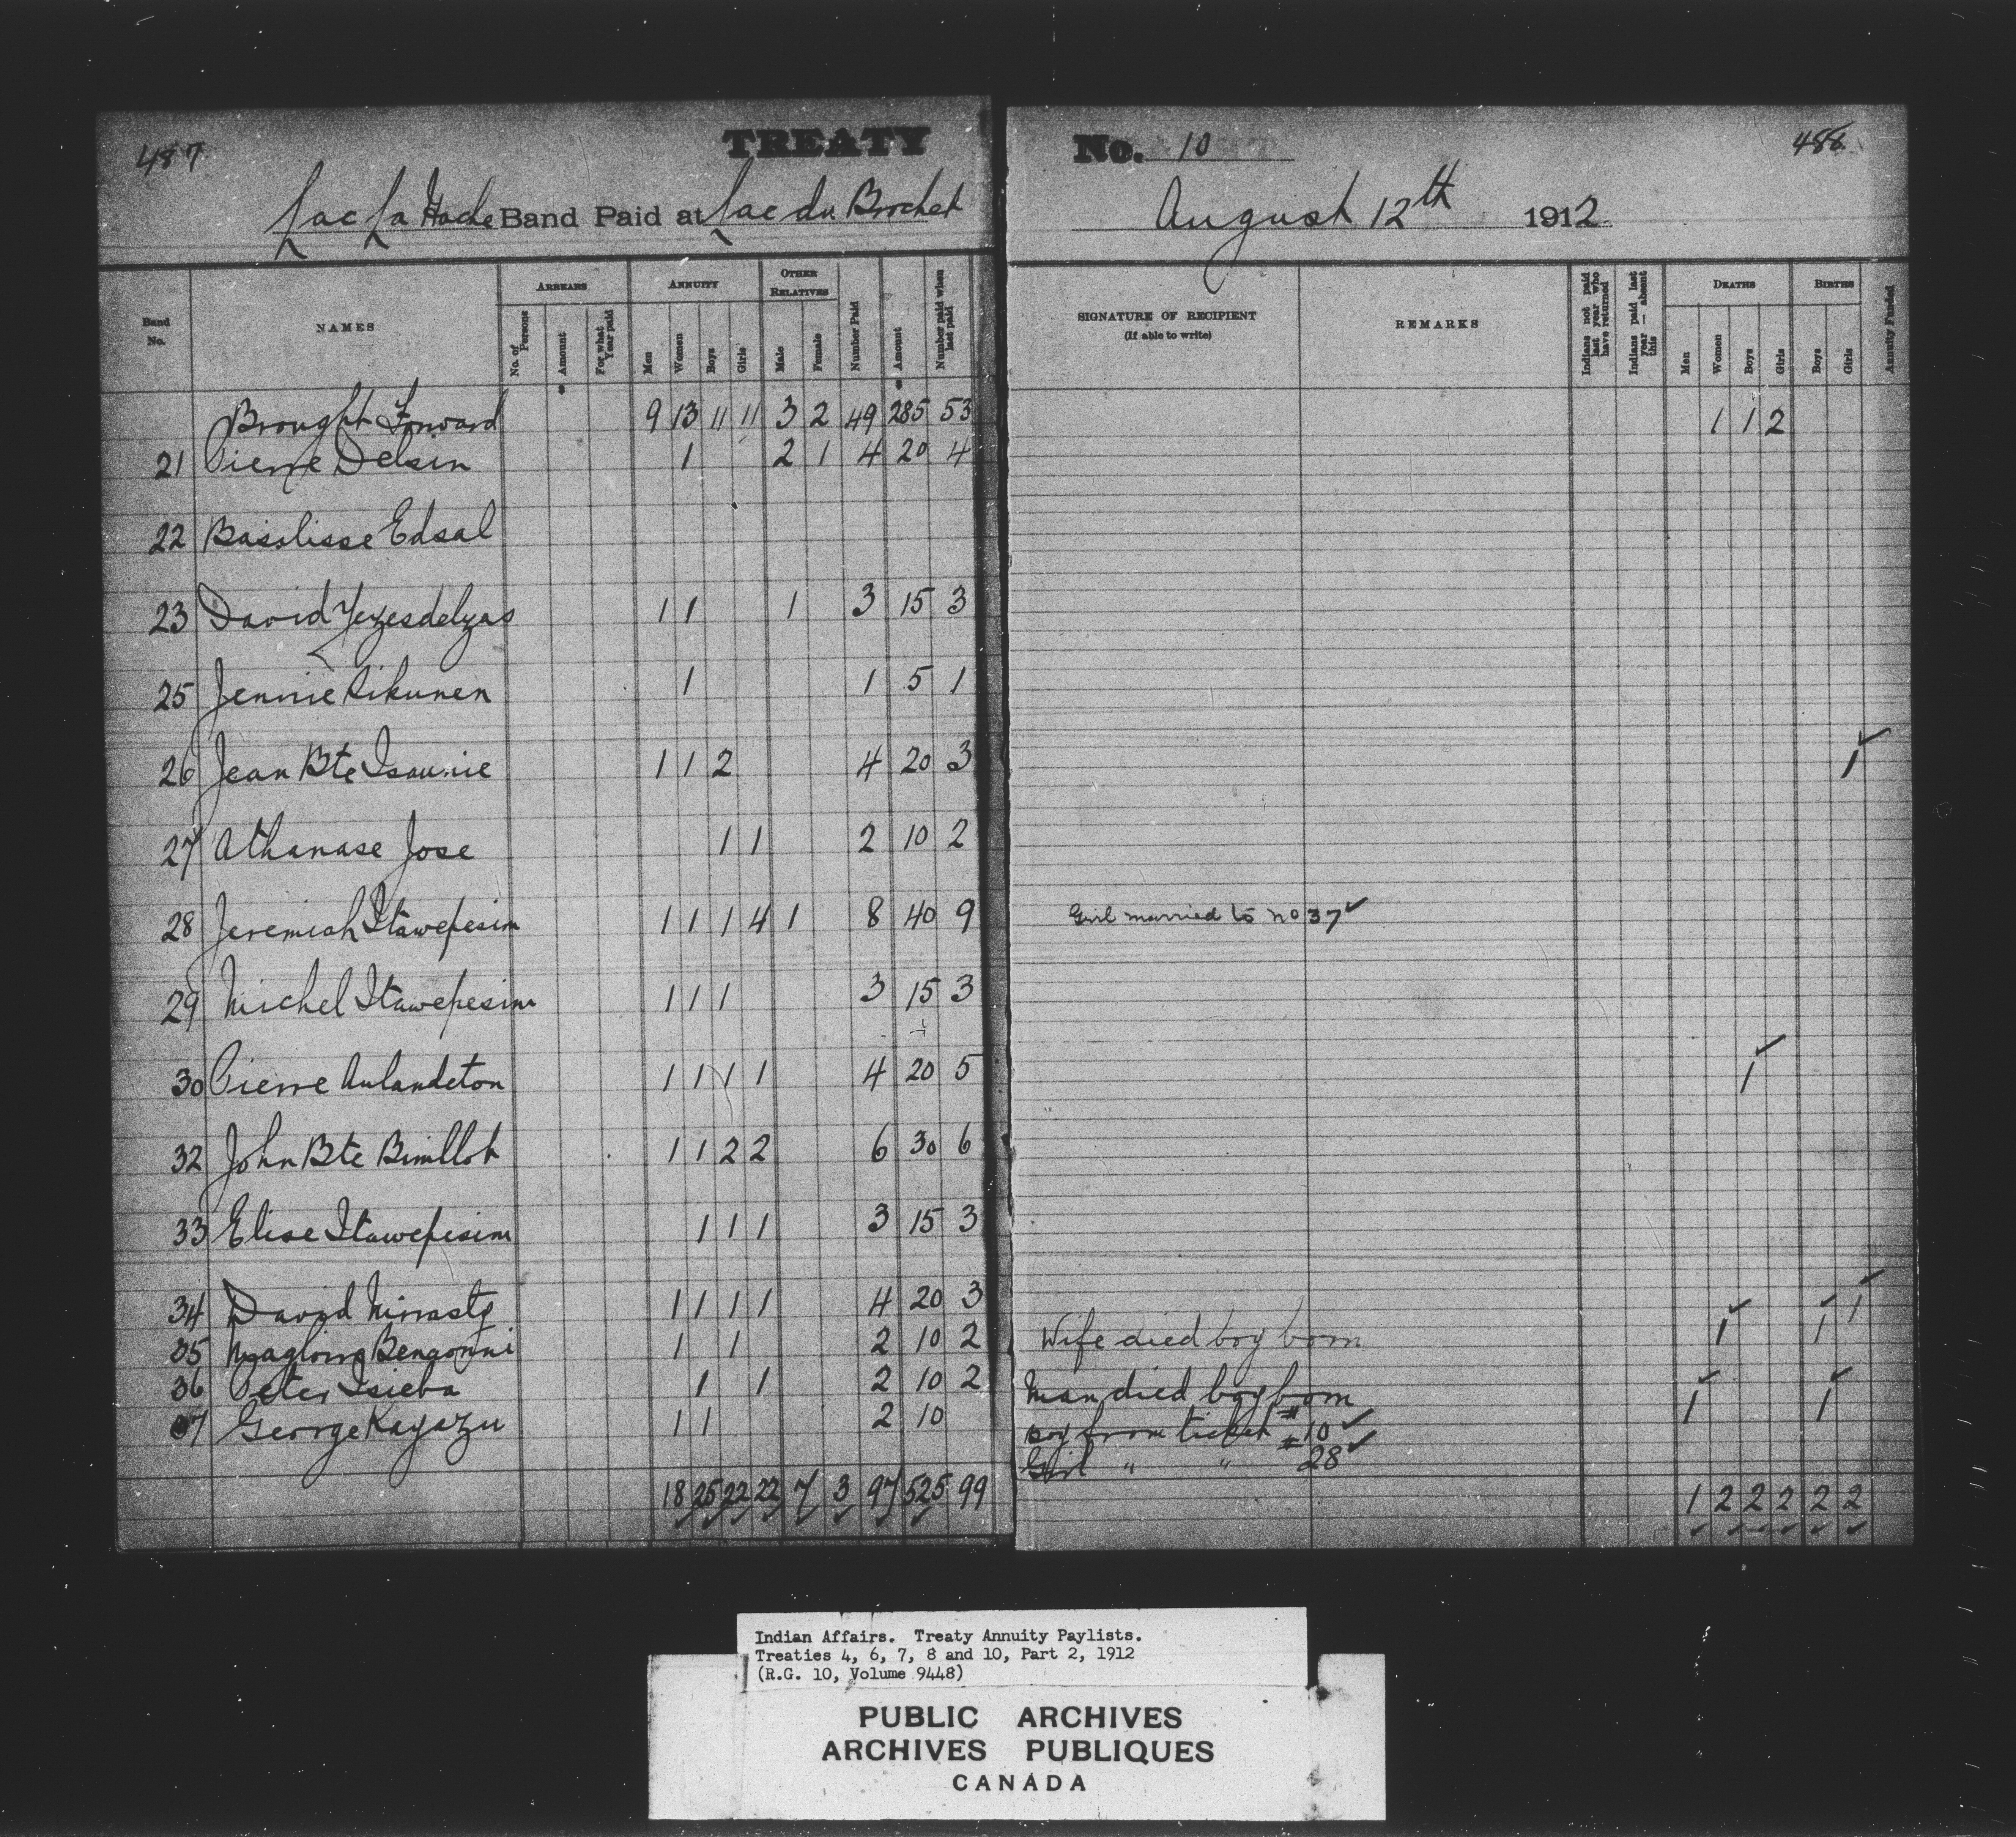 487 TREATY No. 10 488
Lac La Hache Band Paid at Lac du Brochet August 12th 1912
Band No. NAMES ARREARS No. of Persons Amount For what Year paid ANNUITY Men Women Boys Girls OTHER RELATIVES Male Female Number Paid Amount Number paid when last paid SIGNATURE OF RECIPIENT (If able to write) REMARKS Indians not paid last year who have returned Indians paid last year — absent this DEATHS Men Women Boys Girls BIRTHS Boys Girls Annuity Funded
Brought Forward 9 13 11 11 3 2 49 285 53 1 1 2
21 Pierre Delsin 1 2 1 4 20 4
22 Basslisse Edsal
23 David Yezesdelzas 1 1 1 3 15 3
25 Jennie 1 1 5 1
26 Jean Bte Isaunie 1 1 2 4 20 3 1
27 Athanase Jose 1 1 2 10 2
28 Jeremiah Itawepesim 1 1 1 4 1 8 40 9 Girl married to No 37 ✓
29 Michel Itawepesim 1 1 1 3 15 3
30 Pierre Aulandeton 1 1 1 1 4 20 5 1
32 John Bte Bimllot 1 1 2 2 6 30 6
33 Elise Itawepesim 1 1 1 3 15 3
34 David 1 1 1 1 4 20 3 1
35 1 1 2 10 2 Wife died boy born 1 1
36 Peter Isieba 1 1 2 10 2 Man died boy born 1 1
37 George Kayazu 1 1 2 10 Boy from ticket #10 ✓
Girl " " #28 ✓
18 25 22 22 7 3 97 525 99 1 2 2 2 2 2
Indian Affairs. Treaty Annuity Paylists.
Treaties 4, 6, 7, 8 and 10, Part 2, 1912
(R.G. 10, Volume 9448)
PUBLIC ARCHIVES
ARCHIVES PUBLIQUES
CANADA